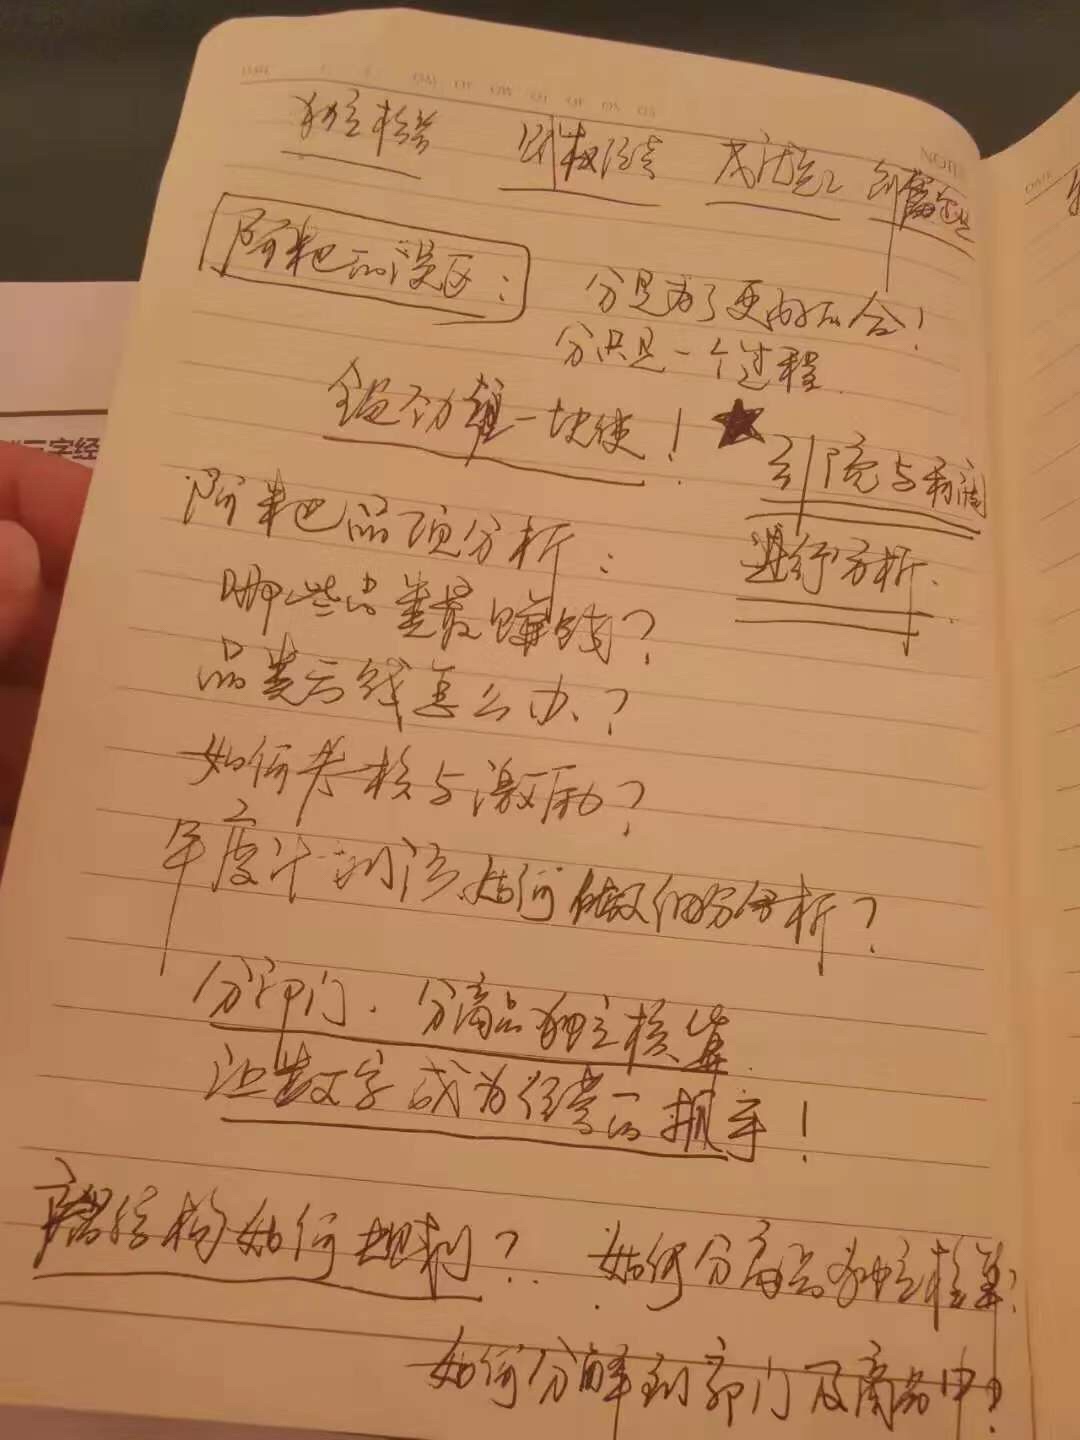 独立核算 财权经营 高层
阿米巴的误区：
分是为了更好的合！
分只是一个过程
全公司一块使！
引流与利润
进行分析.
阿米巴品项分析：
哪些品类最赚钱？
品类亏钱怎么办？
如何考核与激励？
年度计划后如何做细分分析？
分部门、分商品独立核算
让数字成为经营的抓手！
产品结构如何规划？
如何分商品独立核算？
如何分解到部门及商品中？
DATE
NOTE
三字经